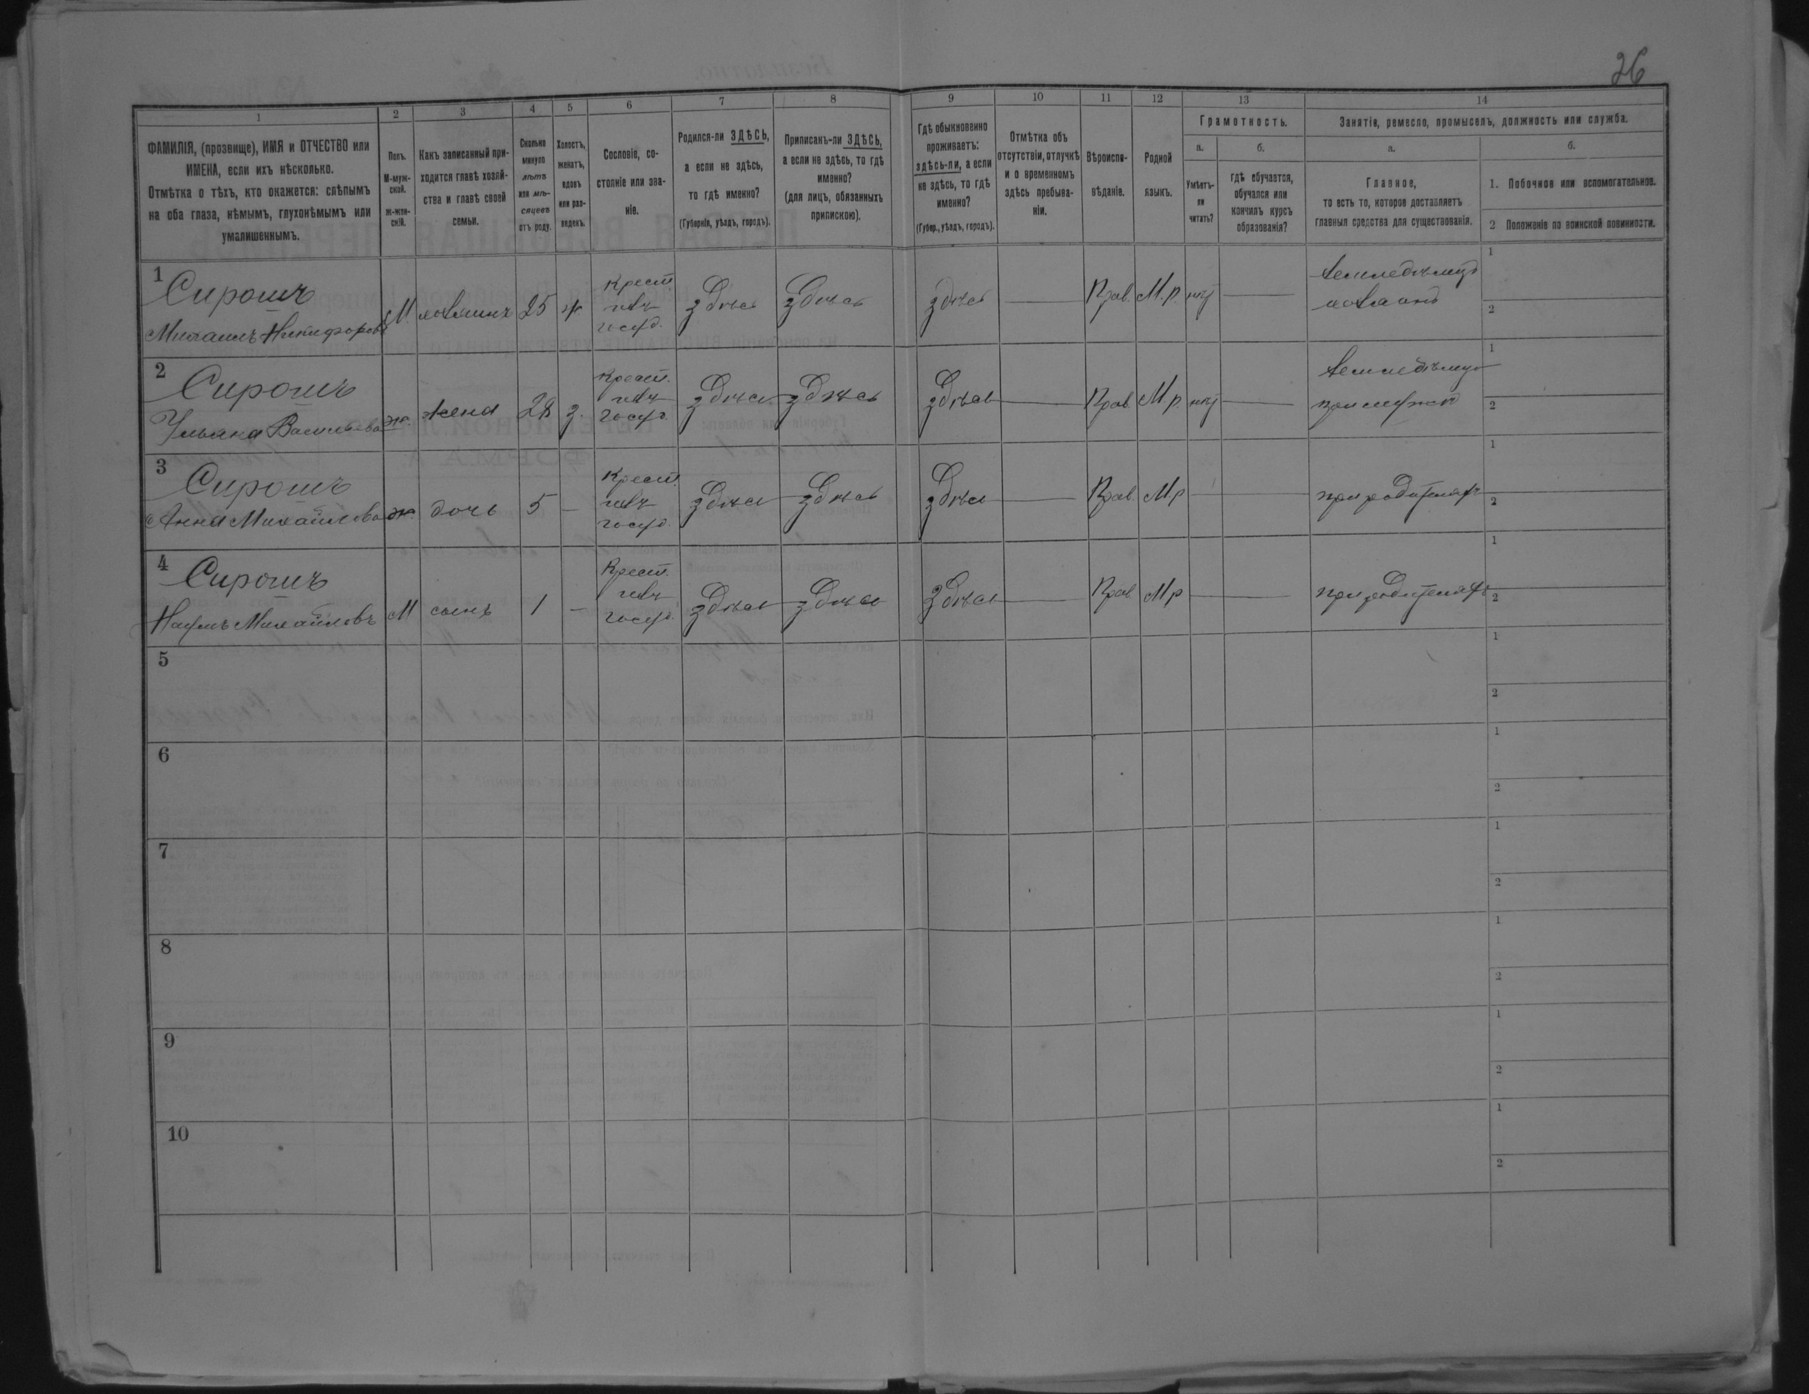 26
1 2 3 4 5 6 7 8 9 10 11 12 13 14
ФАМИЛІЯ, (прозвище), ИМЯ и ОТЧЕСТВО или
ИМЕНА, если ихъ нѣсколько.
Отмѣтка о тѣхъ, кто окажется: слѣпымъ
на оба глаза, нѣмымъ, глухонѣмымъ или
умалишеннымъ.
Полъ.
М-муж-
ской.
ж-жен-
скій.
Какъ записанный при-
ходится главѣ хозяй-
ства и главѣ своей
семьи.
Сколько
минуло
лѣтъ
или мѣ-
сяцевъ
отъ роду.
Холостъ,
женатъ,
вдовъ
или раз-
веденъ.
Сословіе, со-
стояніе или зва-
ніе.
Родился-ли ЗДѢСЬ,
а если не здѣсь,
то гдѣ именно?
(Губернія, уѣздъ, городъ).
Приписанъ-ли ЗДѢСЬ,
а если не здѣсь, то гдѣ
именно?
(для лицъ, обязанныхъ
припискою).
Гдѣ обыкновенно
проживаетъ:
здѣсь-ли, а если
не здѣсь, то гдѣ
именно?
(Губер., уѣздъ, городъ).
Отмѣтка объ
отсутствіи, отлучкѣ
и о временномъ
здѣсь пребыва-
ніи.
Вѣроиспо-
вѣданіе.
Родной
языкъ.
Грамотность.
а.
Умѣетъ-
ли
читать?
б.
гдѣ обучается,
обучался или
кончилъ курсъ
образованія?
Занятіе, ремесло, промыселъ, должность или служба.
а.
Главное,
то есть то, которое доставляетъ
главныя средства для существованія.
б.
1. Побочное или вспомогательное.
2 Положеніе по воинской повинности.
1
Сирошъ
Михаилъ Никифоровъ М. хозяинъ 25 ж
Крест.
изъ
госуд.
здѣсь здѣсь здѣсь — Прав. М.р. нѣт —
Земледѣлец
хозяинъ
1
2
2
Сирошъ
Ульяна Васильева ж. жена 28 з.
Крест.
изъ
госуд.
здѣсь здѣсь здѣсь — Прав. М.р. нѣт —
Земледѣлец
при мужѣ
1
2
3
Сирошъ
Анна Михайлова ж. дочь 5 —
Крест.
изъ
госуд.
здѣсь здѣсь здѣсь — Прав М р —
при родителях
1
2
4
Сирошъ
Наумъ Михайловъ М сынъ 1 —
Крест.
изъ
госуд.
здѣсь здѣсь здѣсь — Прав М р —
при родителях
1
2
5
1
2
6
1
2
7
1
2
8
1
2
9
1
2
10
1
2